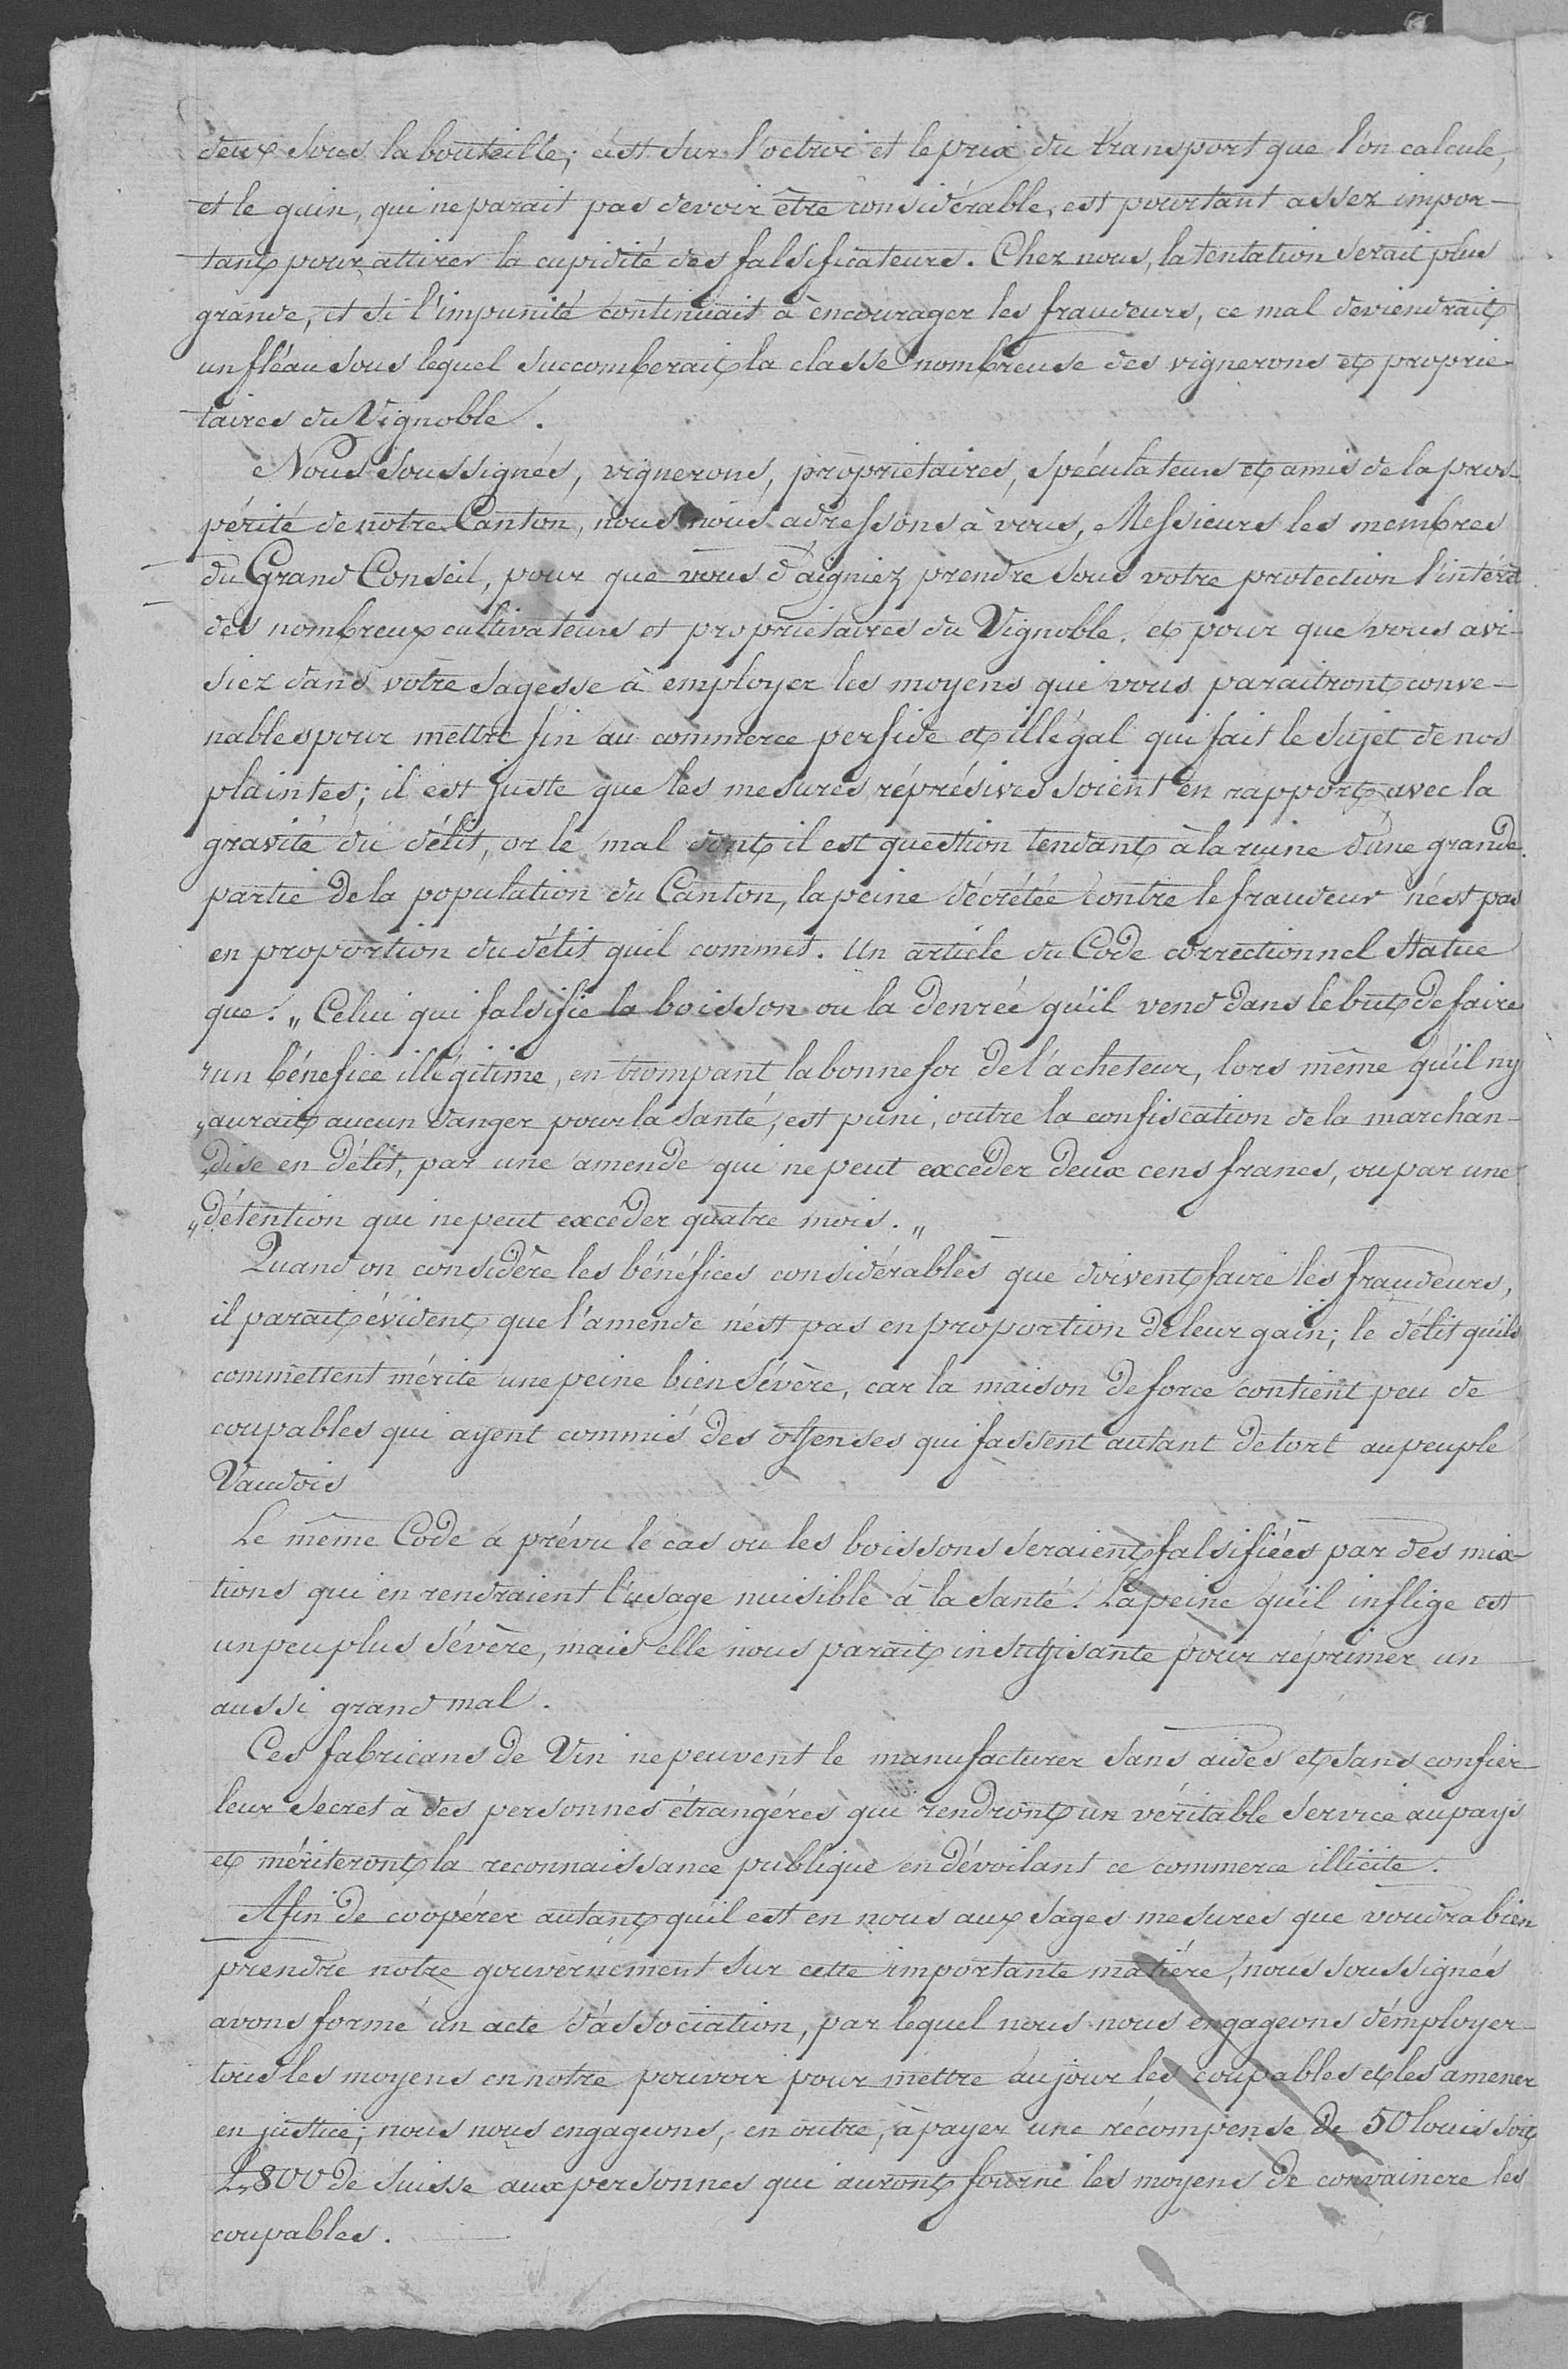 deux sous la bouteille; c'est sur l'octroi et le prix du transport que l'on calcule,
et le guin, qui ne parait pas devoir être considérable, est pourtant assez impor-
tant pour attirer la cupidité des falsificateurs. Chez nous, la tentation serait plus
grande, et si l'impunité continuait à encourager les fraudeurs, ce mal deviendrait
un fléau sous lequel succomberait la classe nombreuse des vignerons et proprié-
taires du Vignoble.
Nous soussignés, vignerons, propriétaires, spéculateurs et amis de la pros-
périté de notre Canton, nous nous adressons à vous, Messieurs les membres
du Grand Conseil, pour que vous d'aigniez prendre sous votre protection l'intérêt
des nombreux cultivateurs et propriétaires du Vignoble, et pour que vous avi-
siez dans votre sagesse à employer les moyens qui vous paraitront conve-
nables pour mettre fin au commerce perfide et illégal qui fait le sujet de nos
plaintes; il est juste que les mesures réprésives soient en rapport avec la
gravité du délit, or le mal dont il est question tendant à la ruine d'une grande
partie de la population du Canton, la peine décrétée contre le fraudeur n'est pas
en proportion du délit qu'il commet. Un article du Code correctionnel statue
que: „ Celui qui falsifie la boisson ou la denrée qu'il vend dans le but de faire
„ un bénéfice illégitime, en trompant la bonne foi de l'acheteur, lors même qu'il n'y
„ aurait aucun danger pour la santé, est puni, outre la confiscation de la marchan-
„ dise en délit, par une amende qui ne peut excéder deux cens francs, ou par une
„ détention qui ne peut excéder quatre mois. „
Quand on considère les bénéfices considérables que doivent faire les fraudeurs,
il parait évident que l'amende n'est pas en proportion de leur gain; le délit qu'ils
commettent mérite une peine bien sévère, car la maison de force contient peu de
coupables qui ayent commis des offenses qui fassent autant de tort au peuple
Vaudois
Le même Code a prévu le cas ou les boissons seraient falsifiées par des mix-
tions qui en rendraient l'usage nuisible à la santé. La peine qu'il inflige est
un peu plus sévère, mais elle nous parait insuffisante pour réprimer un
aussi grand mal.
Ces fabricans de Vin ne peuvent le manufacturer sans aides et sans confier
leur secret à des personnes étrangéres qui rendront un véritable service au pays
et mériteront la reconnaissance publique en dévoilant ce commerce illicite.
Afin de coopérer autant qu'il est en nous aux sages mesures que voudra bien
prendre notre gouvernement sur cette importante matiére, nous soussignés
avons formé un acte d'association, par lequel nous nous engageons d'employer
tous les moyens en notre pouvoir pour mettre au jour les coupables et les amener
en justice; nous nous engageons, en outre, à payer une récompense de 50 louis soit
L. 800 de Suisse aux personnes qui auront fourni les moyens de convaincre les
coupables.